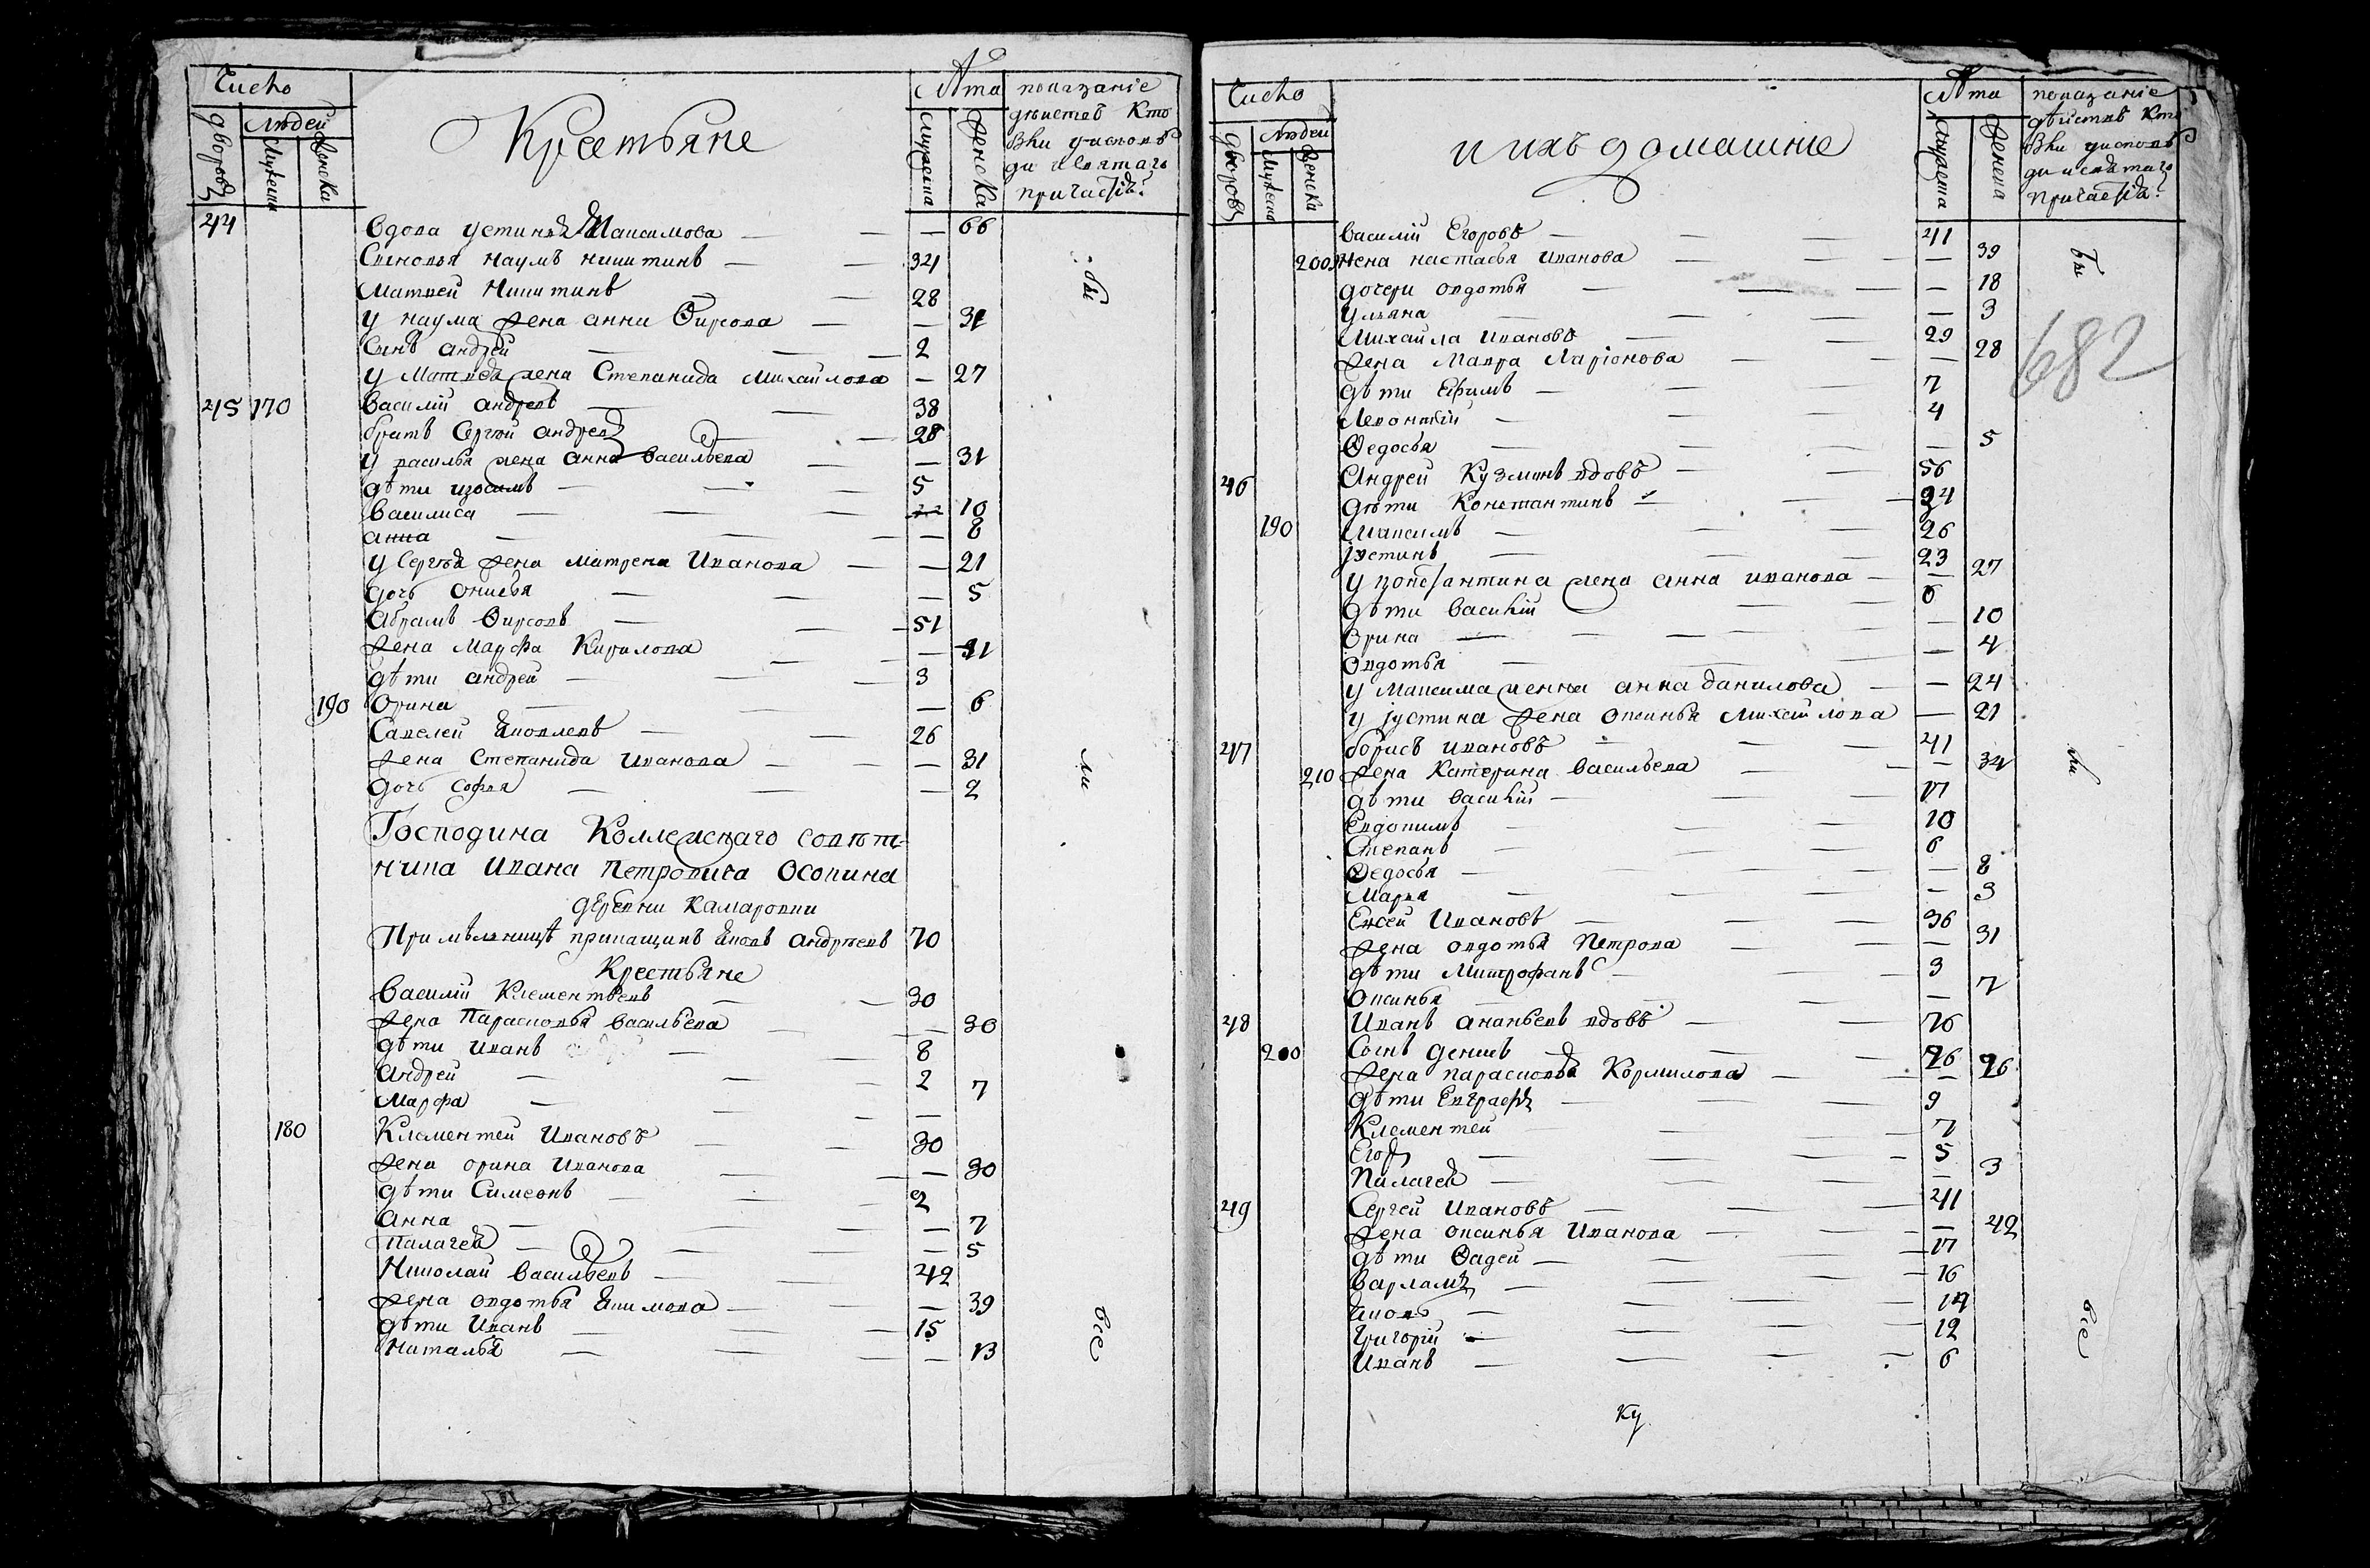 Число
Людей
дворовъ
Мужеска
Женска
Крестьяне
Лѣта
Мужеска
Женска
показаніе
дѣйствъ кто
были у исповѣ
ди и святаго
причастія:
44 вдова устинья Максимова — 66
Сыновья наумъ никитинъ 34
Матвей Никитинъ 28
у наума жена анна Ѳирсова — 31
Сынъ андрей 2
у Матвея жена Степанида Михайлова — 27
45 170 Василій андреевъ 38
братъ Сергей андреевъ 28
у василья жена анна васильева — 31
дѣти изосимъ 5
василиса 10
анна — 8
у Сергея жена матрена Иванова — 21
дочь онисья — 5
Абрамъ Ѳирсовъ 51
жена Марфа Кирилова — 31
дѣти андрей 3
190 Орина — 6
Савелей яковлевъ 26
жена Степанида Иванова — 31
дочь софья — 2
Господина Коллежскаго совѣт-
ника Ивана Петровича Осокина
деревни Камаровки
При мѣльницѣ прикащикъ яковъ андрѣевъ 70
Крестьяне
Василій Клементьевъ 30
жена Парасковья васильева — 30
дѣти Иванъ 8
андрей 2
марфа — 7
180 Клементей Ивановъ 30
жена орина Иванова — 30
дѣти Симеонъ 2
анна — 7
палагея — 5
Николай васильевъ 42
жена овдотья Якимова — 39
дѣти Иванъ 15
Наталья — 13
бы
ли
все
Число
Людей
дворовъ
Мужеска
Женска
и ихъ домашніе
Лѣта
Мужеска
Женска
показаніе
дѣйствъ кто
были у исповѣ
ди и святаго
причастія:
василій Егоровъ 41
200 жена настасья иванова — 39
дочери овдотья — 18
ульяна — 3
Михайла ивановъ 29
жена Мавра Ларіонова — 28
дѣти Ефимъ 7
Леонтій 4
Ѳедосья — 5
46 Андрей Кузминъ вдовъ 56
дѣти Константинъ 34
190 Максимъ 26
іустинъ 23
у константина жена анна иванова — 27
дѣти василій 6
орина — 10
овдотья — 4
у Максима женна анна данилова — 24
у іустина жена оксинья михайлова — 21
47 борисъ ивановъ 41
210 жена катерина васильева — 34
дѣти василій 17
Евдокимъ 10
Степанъ 6
Ѳедосья — 8
Марья — 3
Евсей Ивановъ 36
жена овдотья Петрова — 31
дѣти Митрофанъ 3
Оксинья — 7
48 Иванъ ананьевъ вдовъ 76
200 Сынъ денисъ 26
жена парасковья Кормилова — 26
дѣти Евграфъ 9
Клементей 7
Егоръ 5
Палагея — 3
49 Сергей Ивановъ 41
жена оксинья Иванова — 42
дѣти Ѳадей 17
варламъ 16
яковъ 14
григорій 12
Иванъ 6
бы
682
ли
все
ку